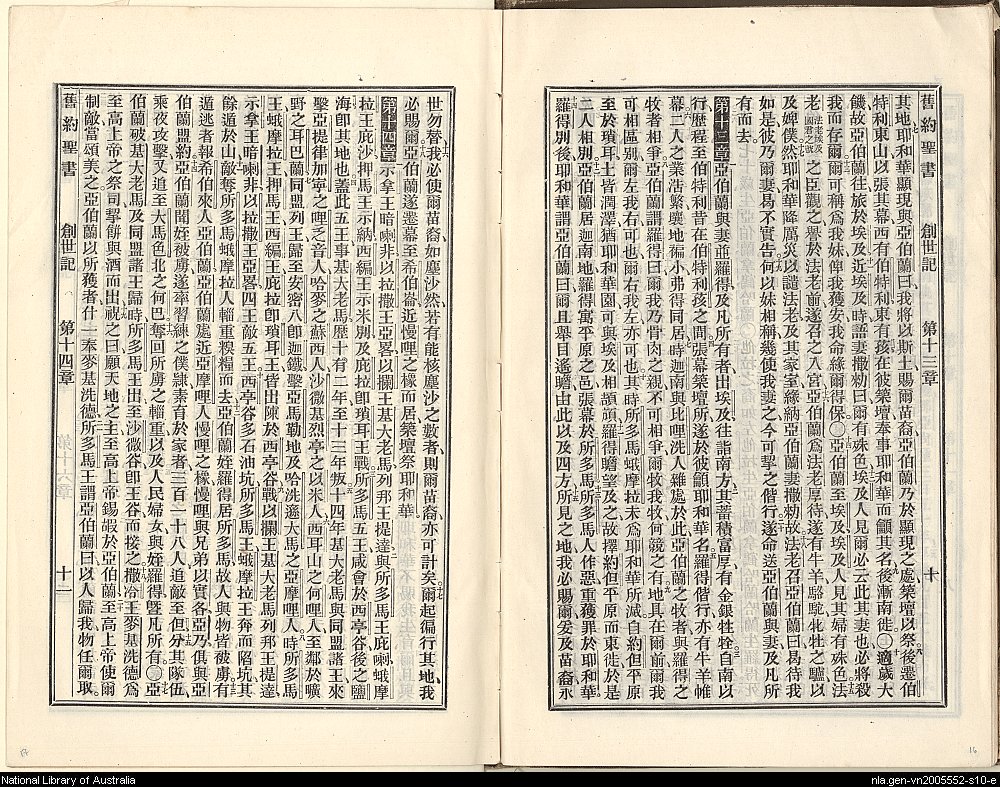 舊約聖書　創世記　第十三章　十
其地耶和華顯現與亞伯蘭曰我將以斯土賜爾苗裔亞伯蘭乃於顯現之處築壇以祭後遷伯
特利東山以張其幕西有伯特利東有孩在彼築壇奉事耶和華而籲其名後漸南徙〇適歲大
饑故亞伯蘭往旅於埃及近埃及時語妻撒勑曰爾有殊色埃及人見爾必云此其妻也必將殺
我而存爾爾可稱爲我妹俾我獲安我命緣爾得保〇亞伯蘭至埃及埃及人見其婦有殊色法
老法老埃及國君之號之臣觀之譽於法老前遂召之入宮亞伯蘭爲法老厚待遂有牛羊駱駝牝牡之驢以
及婢僕然耶和華降厲災以譴法老及其家室緣納亞伯蘭妻撒勑故法老召亞伯蘭曰曷待我
如是彼乃爾妻曷不實告何以妹相稱幾使我妻之今可挈之偕行遂命送亞伯蘭與妻及凡所
有而去
第十三章亞伯蘭與妻並羅得及凡所有者出埃及往詣南方其蓄積富厚有金銀牲牷自南以
行歷程至伯特利昔在伯特利孩之間張幕築壇所遂於彼籲耶和華名羅得偕行亦有牛羊帷
幕二人之業浩繁壤地褊小弗得同居時迦南與比哩洗人雜處於此亞伯蘭之牧者與羅得之
牧者相爭亞伯蘭謂羅得曰爾我乃骨肉之親不可相爭爾牧我牧何競之有地具在爾前爾我
可相區別爾左我右可也爾右我左亦可也其時所多馬蛾摩拉未爲耶和華所滅自約但平原
至於瑣耳土皆潤澤猶耶和華園可與埃及相頡頏羅得瞻望及之故擇約但平原而東徙於是
二人相別亞伯蘭居迦南地羅得寓平原之邑張幕於所多馬所多馬人作惡重獲罪於耶和華
羅得別後耶和華謂亞伯蘭曰爾且舉目遙瞻由此以及四方所見之地我必賜爾爰及苗裔永
16
世勿替我必使爾苗裔如塵沙然若有能核塵沙之數者則爾苗裔亦可計矣爾起徧行其地我
必賜爾亞伯蘭遂遷幕至希伯崙近慢哩之橡而居築壇祭耶和華
第十四章示拿王暗喇非以拉撒王亞畧以攔王基大老馬列邦王提達與所多馬王庇喇蛾摩
拉王庇沙押馬王示納西編王示米別及庇拉卽瑣耳王戰所多馬五王咸會於西亭谷後之鹽
海卽其地也蓋此五王事基大老馬歷十有二年至十三年叛十四年基大老馬與同盟諸王來
擊亞提律加寧之哩乏音人哈麥之蘇西人沙微基烈亭之以米人西耳山之何哩人至鄰於曠
野之耳巴蘭同盟列王歸至安密八卽迦鐵擊亞馬勒地及哈洗遜大馬之亞摩哩人時所多馬
王蛾摩拉王押馬王西編王庇拉卽瑣耳王皆出陳於西亭谷戰以攔王基大老馬列邦王提達
示拿王暗喇非以拉撒王亞畧四王敵五王西亭谷多石油坑所多馬王蛾摩拉王奔而陷坑其
餘遁於山敵奪所多馬蛾摩拉人輜重糗糧而去亞伯蘭姪羅得居所多馬故人與物皆被虜有
遁逃者報希伯來人亞伯蘭亞伯蘭處近亞摩哩人慢哩之橡慢哩與兄弟以實各亞乃俱與亞
伯蘭盟約亞伯蘭聞姪被虜遂率習練之僕隸素育於家者三百一十八人追敵至但分其隊伍
乘夜攻擊又追至大馬色北之何巴奪回所虜之輜重以及人民婦女與姪羅得曁凡所有〇亞
伯蘭破基大老馬及同盟諸王歸時所多馬王出至沙微谷卽王谷而接之撒冷王麥基洗德爲
至高上帝之祭司挈餅與酒而出祝之曰願天地之主至高上帝錫嘏於亞伯蘭至高上帝使爾
制敵當頌美之亞伯蘭以所獲者什一奉麥基洗德所多馬王謂亞伯蘭曰以人歸我物任爾取
舊約聖書　創世記　第十四章　十一
National Library of Australia
nla.gen-vn2005552-s10-e